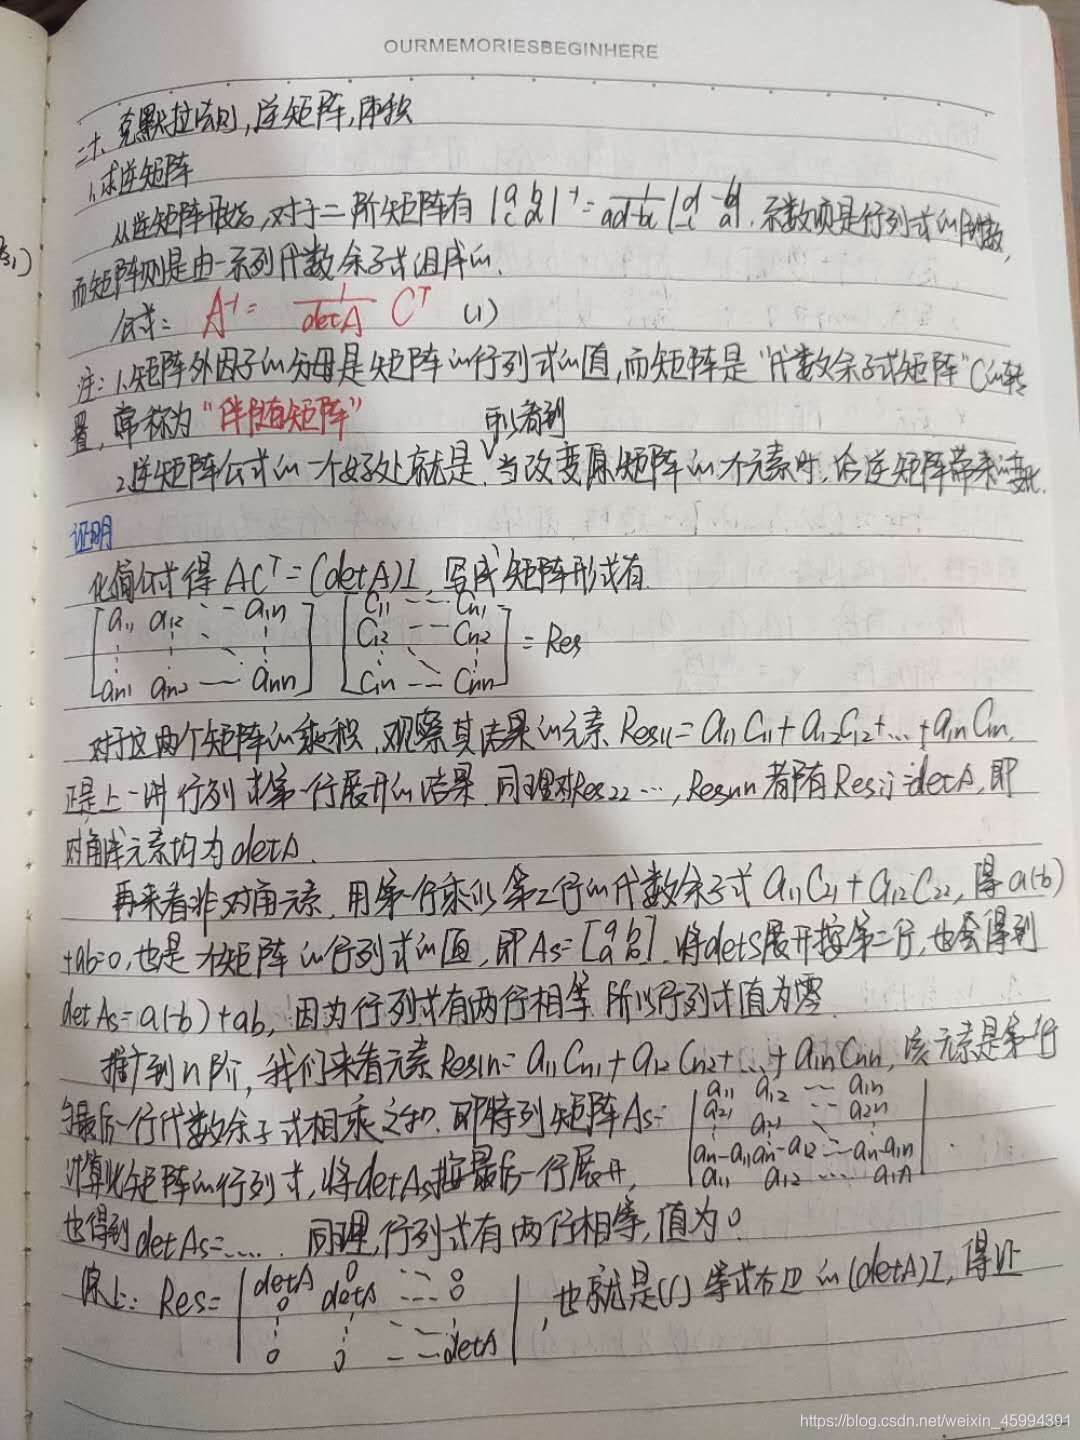 OURMEMORIESBEGINHERE
二十、克默拉法则,逆矩阵,体积
1.求逆矩阵
从逆矩阵开始,对于二阶矩阵有 |a b c d|⁻¹ = 1/(ad-bc) |d -b -c a|. 系数项是行列式的倒数,
而矩阵则是由一系列代数余子式组成的.
公式: A⁻¹ = 1/detA Cᵀ (1)
注: 1.矩阵外因子的分母是矩阵的行列式的值,而矩阵是"代数余子式矩阵"C的转
置,常称为"伴随矩阵"
可以看到
2.逆矩阵公式的一个好处就是 当改变原矩阵的一个元素时,给逆矩阵带来的变化.
证明
化简公式得 ACᵀ=(detA)I, 写成矩阵形式有.
[a11 a12 ⋯ a1n ⋮ an1 an2 — ann] [C11 ⋯ Cn1 C12 ⋯ Cn2 ⋮ C1n ⋯ Cnn] = Res
对于这两个矩阵的乘积,观察其结果的元素 Res11=a11C11+a12C12+...+a1nC1n,
正是上一讲行列式第一行展开的结果.同理对Res22 ⋯,Resnn都有Resij=detA,即
对角线元素均为detA.
再来看非对角元素,用第一行乘以第2行的代数余子式 a11C21+a12C22,得a(-b)
+ab=0,也是一个矩阵的行列式的值,即As=[a b a b].将detS展开按第二行,也会得到
detAs=a(-b)+ab, 因为行列式有两行相等,所以行列式值为零.
推广到n阶,我们来看元素Res1n=a11Cn1+a12Cn2+...+a1nCnn,该元素是第一行
与最后一行代数余子式相乘之和.即特列矩阵As= |a11 a12 ⋯ a1n a21 a22 ⋯ a2n ⋮ an-a11 an-a12 ⋯ an-a1n a11 a12 ⋯ a1n|.
计算此矩阵的行列式,将detAs按最后一行展开,
也得到detAs=..... 同理,行列式有两行相等,值为0.
综上: Res= |detA 0 ⋯ 0 0 detA ⋯ 0 ⋮ 0 0 ⋯ detA|, 也就是(1)等式右边的(detA)I,得证
https://blog.csdn.net/weixin_45994391